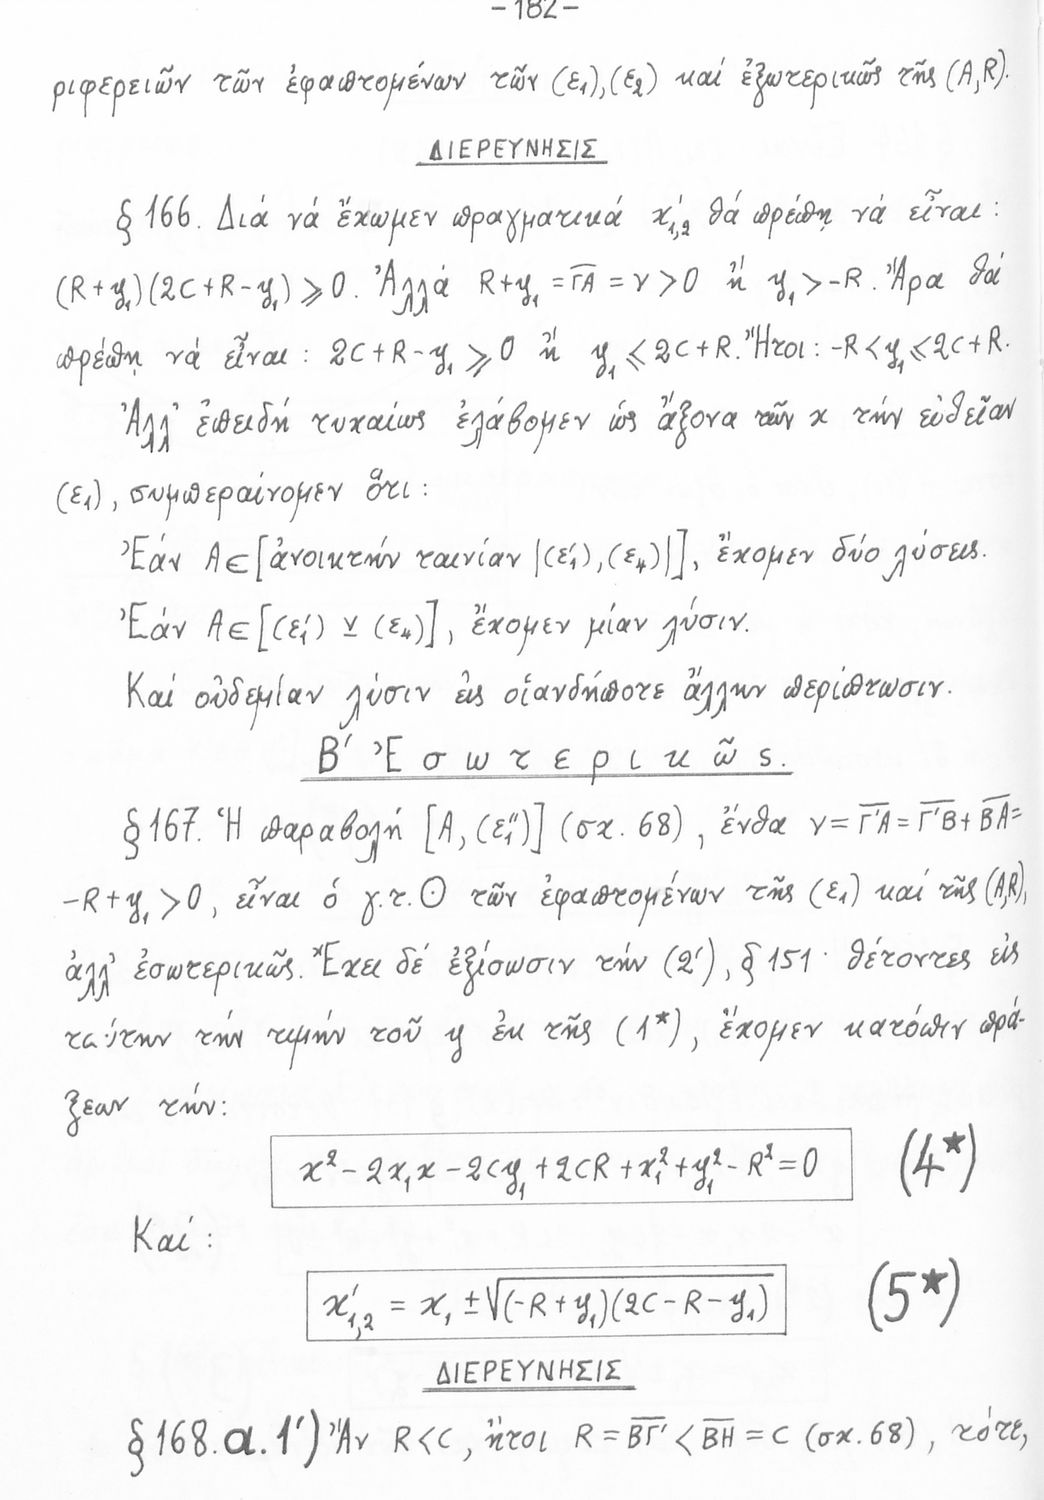 -182-
ριφερειῶν τῶν ἐφαπτομένων τῶν (ε₁),(ε₂) καί ἐξωτερικῶς τῆς (A,R).
ΔΙΕΡΕΥΝΗΣΙΣ
§ 166. Διά νά ἔχωμεν πραγματικά x′₁,₂ θά πρέπῃ νά εἶναι :
(R+y₁)(2C+R-y₁) ⩾ 0. Ἀλλά R+y₁ = Γ̅Α̅ = ν > 0 ἤ y₁ > -R. Ἄρα θά
πρέπῃ νά εἶναι : 2C+R-y₁ ⩾ 0 ἤ y₁ ⩽ 2C+R. Ἤτοι : -R < y₁ ⩽ 2C+R.
Ἀλλ' ἐπειδή τυχαίως ἐλάβομεν ὡς ἄξονα τῶν x τήν εὐθεῖαν
(ε₁), συμπεραίνομεν ὅτι :
Ἐάν A∈[ἀνοικτήν ταινίαν |(ε₁′),(ε₄)|], ἔχομεν δύο λύσεις.
Ἐάν A∈[(ε₁′) ⊻ (ε₄)], ἔχομεν μίαν λύσιν.
Καί οὐδεμίαν λύσιν εἰς οἱανδήποτε ἄλλην περίπτωσιν.
Β′ Ἐ σ ω τ ε ρ ι κ ῶ ς.
§ 167. Ἡ παραβολή [A,(ε₁″)] (σχ. 68), ἔνθα ν = Γ̅′̅Α̅ = Γ̅′̅Β̅ + Β̅Α̅ =
-R+y₁ > 0, εἶναι ὁ γ.τ. ʘ τῶν ἐφαπτομένων τῆς (ε₁) καί τῆς (A,R),
ἀλλ' ἐσωτερικῶς. Ἔχει δέ ἐξίσωσιν τήν (2′), § 151· θέτοντες εἰς
ταύτην τήν τιμήν τοῦ y ἐκ τῆς (1*), ἔχομεν κατόπιν πρά-
ξεων τήν:
x² - 2x₁x - 2Cy₁ + 2CR + x₁² + y₁² - R² = 0 (4*)
Καί :
x′₁,₂ = x₁ ± √(-R+y₁)(2C-R-y₁) (5*)
ΔΙΕΡΕΥΝΗΣΙΣ
§ 168. α. 1′) Ἄν R < C, ἤτοι R = Β̅Γ̅′̅ < Β̅Η̅ = C (σχ. 68), τότε,